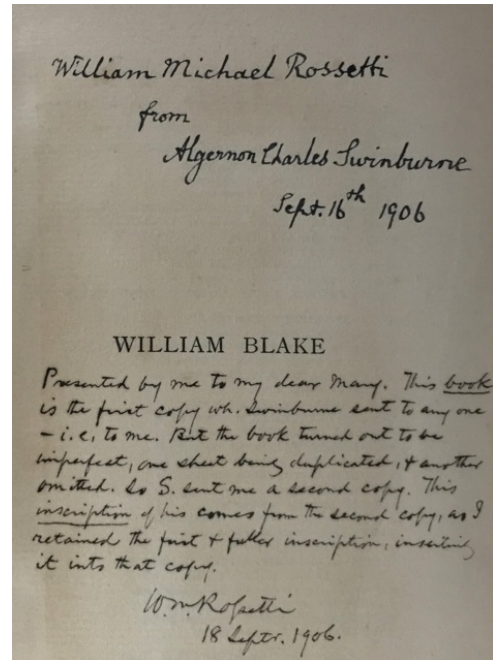 William Michael Rossetti
from
Algernon Charles Swinburne
Sept. 16th 1906
WILLIAM BLAKE
Presented by me to my dear Mary. This book
is the first copy wh. Swinburne sent to any one
– i.e. to me. But the book turned out to be
imperfect, one sheet being duplicated, & another
omitted. So S. sent me a second copy. This
inscription of his comes from the second copy, as I
retained the first & fuller inscription, inserting
it into that copy.
Wm Rossetti
18 Septr. 1906.